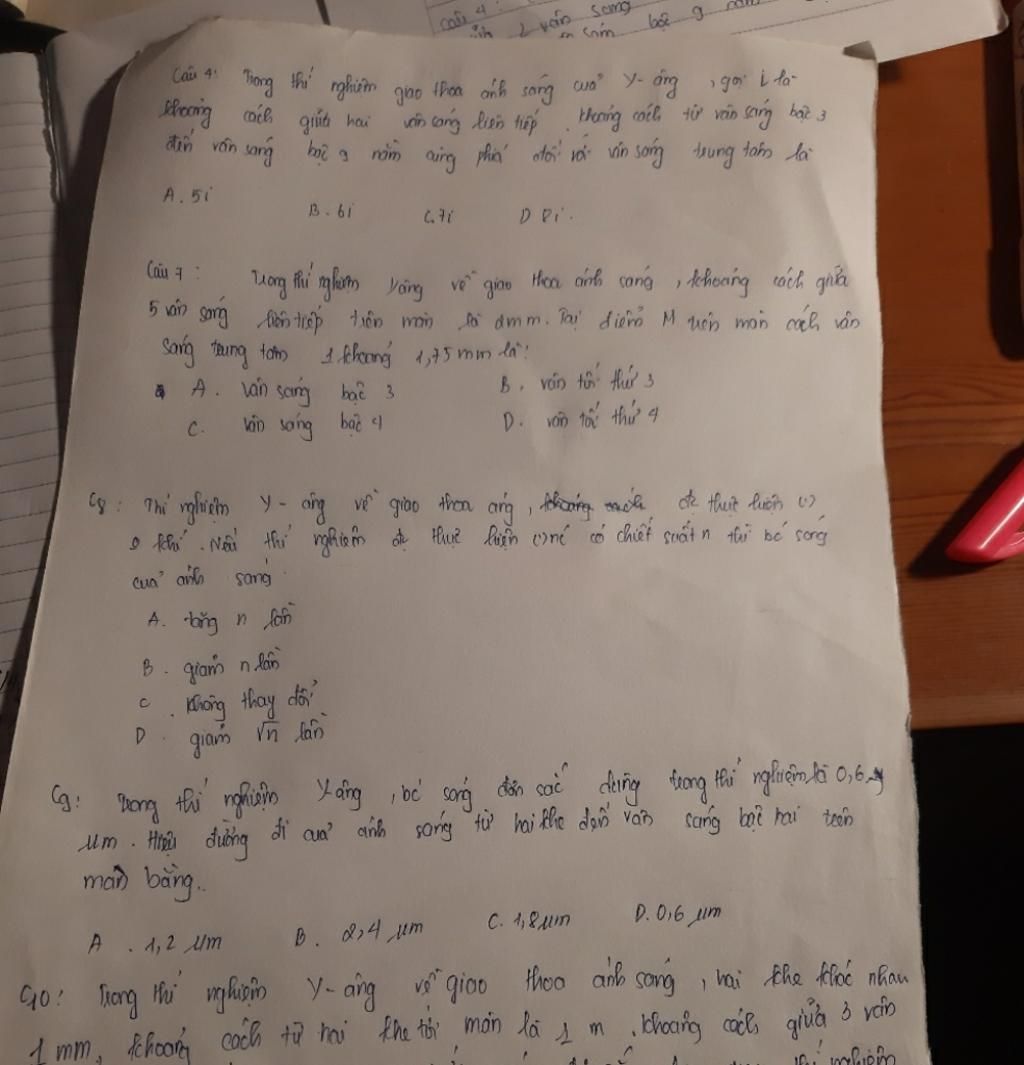 câu 4:
2 vân sang
sám bậc 9
Câu 4: Trong thí nghiệm giao thoa ánh sáng cuả Y-âng , gọi i là
khoảng cách giữa hai vân sáng liên tiếp. khoảng cách từ vân sáng bậc 3
đến vân sáng bậc 9 nằm cùng phía đối với vân sáng trung tâm là
A. 5i
B. 6i C. 7i D 8i.
Câu 7 : Trong thí nghiệm Yâng về giao thoa ánh sáng , khoảng cách giữa
5 vân sáng liên tiếp trên màn là 2mm. Tại điểm M trên màn cách vân
sáng trung tâm 1 khoảng 1,75 mm là:
A. vân sáng bậc 3 B. vân tối thứ 3
C. vân sáng bậc 4 D. vân tối thứ 4
C8 : Thí nghiệm Y-âng về giao thoa áng, đc thực hiện
khí. Nếu thí nghiệm đc thực hiện có chiết suất n thì bc sóng
cuả ánh sáng
A. tăng n lần
B. giảm n lần
C . không thay đổi
D . giảm √n lần
C9: Trong thí nghiệm Yâng , bc sóng đơn sắc dùng trong thí nghiệm là 0,6
μm. Hiệu đường đi cuả ánh sáng từ hai khe đến vân sáng bậc hai trên
màn bằng..
A . 1,2 μm B. 2,4 μm C. 1,8μm D. 0,6 μm
C10: Trong thí nghiệm Y-âng về giao thoa ánh sáng , hai khe khác nhau
1 mm, khoảng cách từ hai khe tới màn là 1 m. khoảng cách giữa 3 vân
thí nghiệm